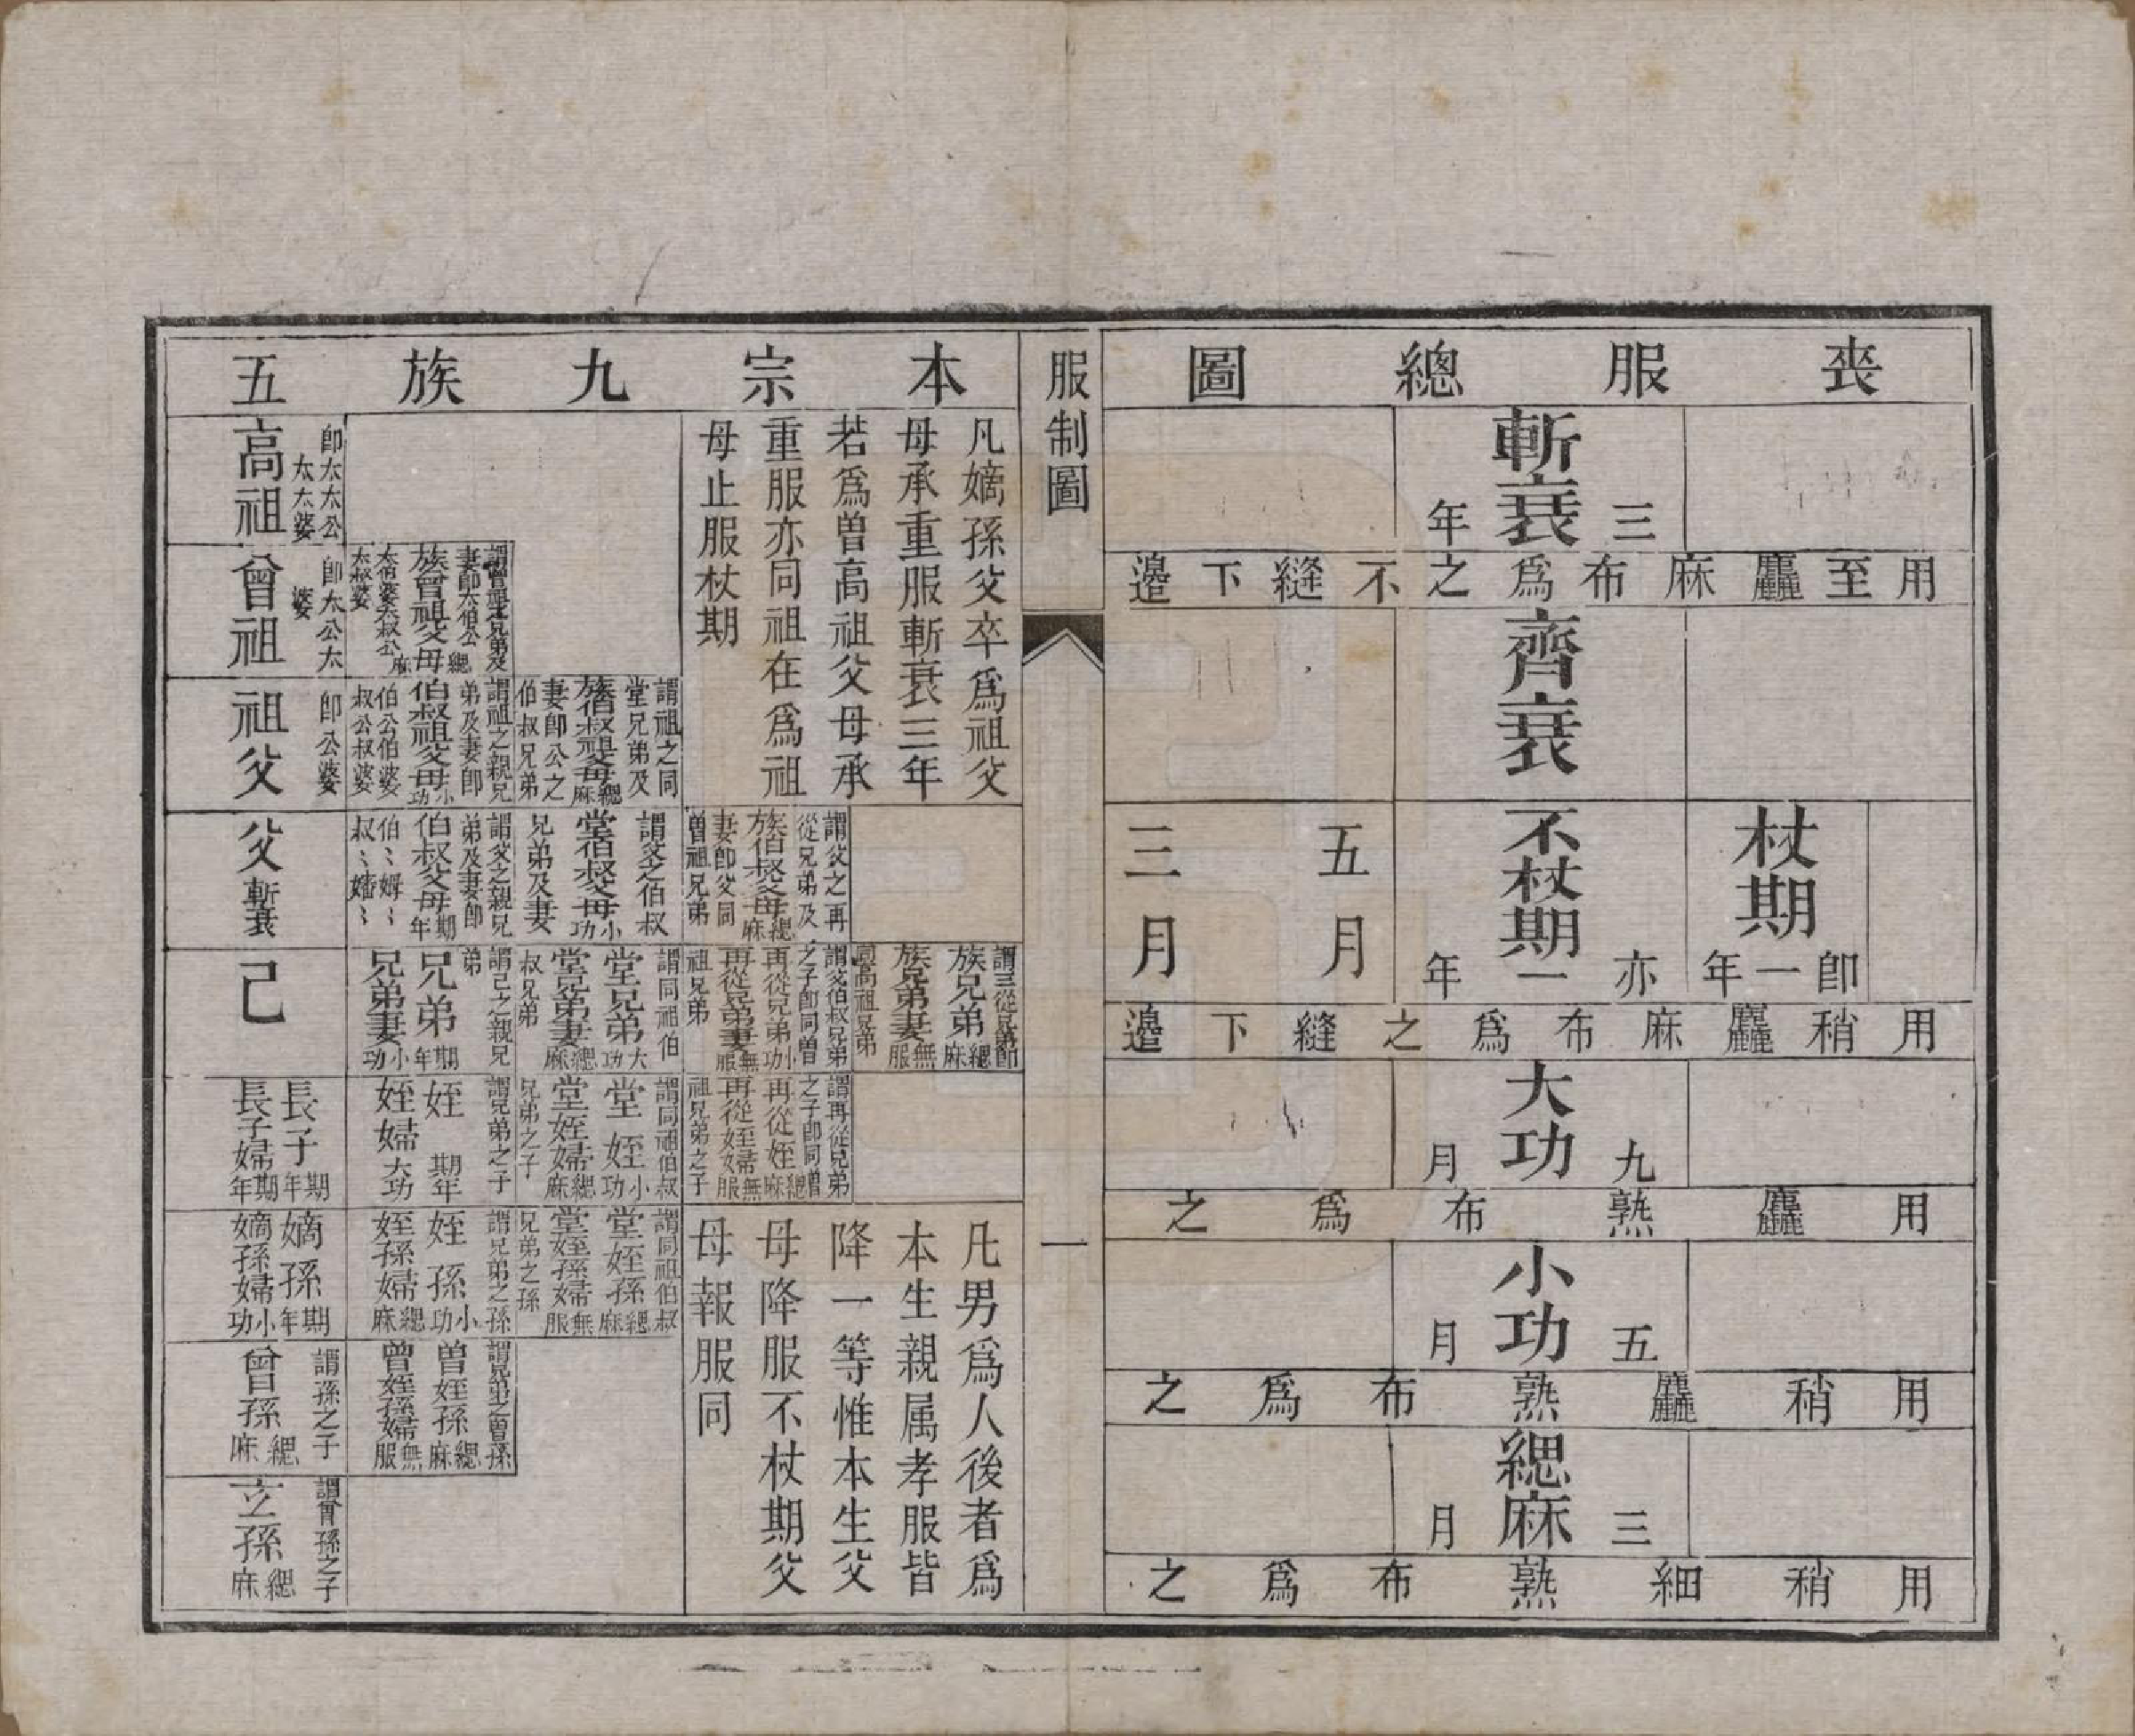 喪服總圖
斬衰
三年
用至麤麻布為之不縫下邉
齊衰
杖期
即一年
不杖期
亦一年
五月
三月
用稍麤麻布為之縫下邉
大功
九月
用麤熟布為之
小功
五月
用稍麤熟布為之
緦麻
三月
用稍細熟布為之
服制圖
一
本宗九族五
凡嫡孫父卒爲祖父
母承重服斬衰三年
若爲曽高祖父母承
重服亦同祖在爲祖
母止服杖期
謂三從兄弟即
同高祖兄弟
族兄弟緦麻
族兄弟妻無服
謂父之再
從兄弟及
族伯叔父母緦麻
妻即父同
曽祖兄弟
謂父伯叔兄弟
之子即同曽
再從兄弟小功
再從兄弟妻無服
祖兄弟
謂再從兄弟
之子即同曽
再從姪緦麻
再從姪婦無服
祖兄弟之子
凡男爲人後者爲
本生親属孝服皆
降一等惟本生父
母降服不杖期父
母報服同
謂祖之同
堂兄弟及
族伯叔祖父母緦麻
妻即公之
伯叔兄弟
謂父之伯叔
堂伯叔父母小功
兄弟及妻
謂同祖伯
堂兄弟大功
堂兄弟妻緦麻
叔兄弟
謂同祖伯叔
堂姪小功
堂姪婦緦麻
兄弟之子
謂同祖伯叔
堂姪孫緦麻
堂姪孫婦無服
兄弟之孫
謂曾祖之兄弟及
妻即太伯公
族曾祖父母緦麻
太伯婆太叔公
太叔婆
謂祖之親兄
弟及妻即
伯叔祖父母小功
伯公伯婆
叔公叔婆
謂父之親兄
弟及妻即
伯叔父母期年
伯〻姆〻
叔〻嬸〻
謂己之親兄
弟
兄弟期年
兄弟妻小功
謂兄弟之子
姪期年
姪婦大功
謂兄弟之孫
姪孫小功
姪孫婦緦麻
謂兄弟之曽孫
曽姪孫緦麻
曾姪孫婦無服
即太太公
太太婆
高祖
即太公太
婆
曾祖
即公婆
祖父
父斬衰
己
長子期年
長子婦期年
嫡孫期年
嫡孫婦小功
謂孫之子
曾孫緦麻
謂曾孫之子
玄孫緦麻